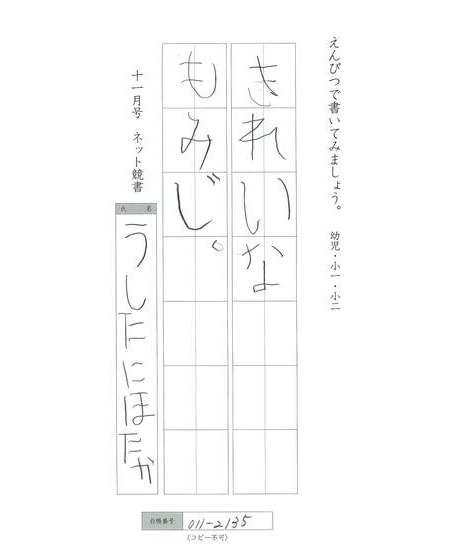 えんぴつで書いてみましょう。　幼児・小一・小二
きれいな
もみじ。
十一月号　ネット競書
氏　名
うしたにほたか
台帳番号
011-2135
(コピー不可)